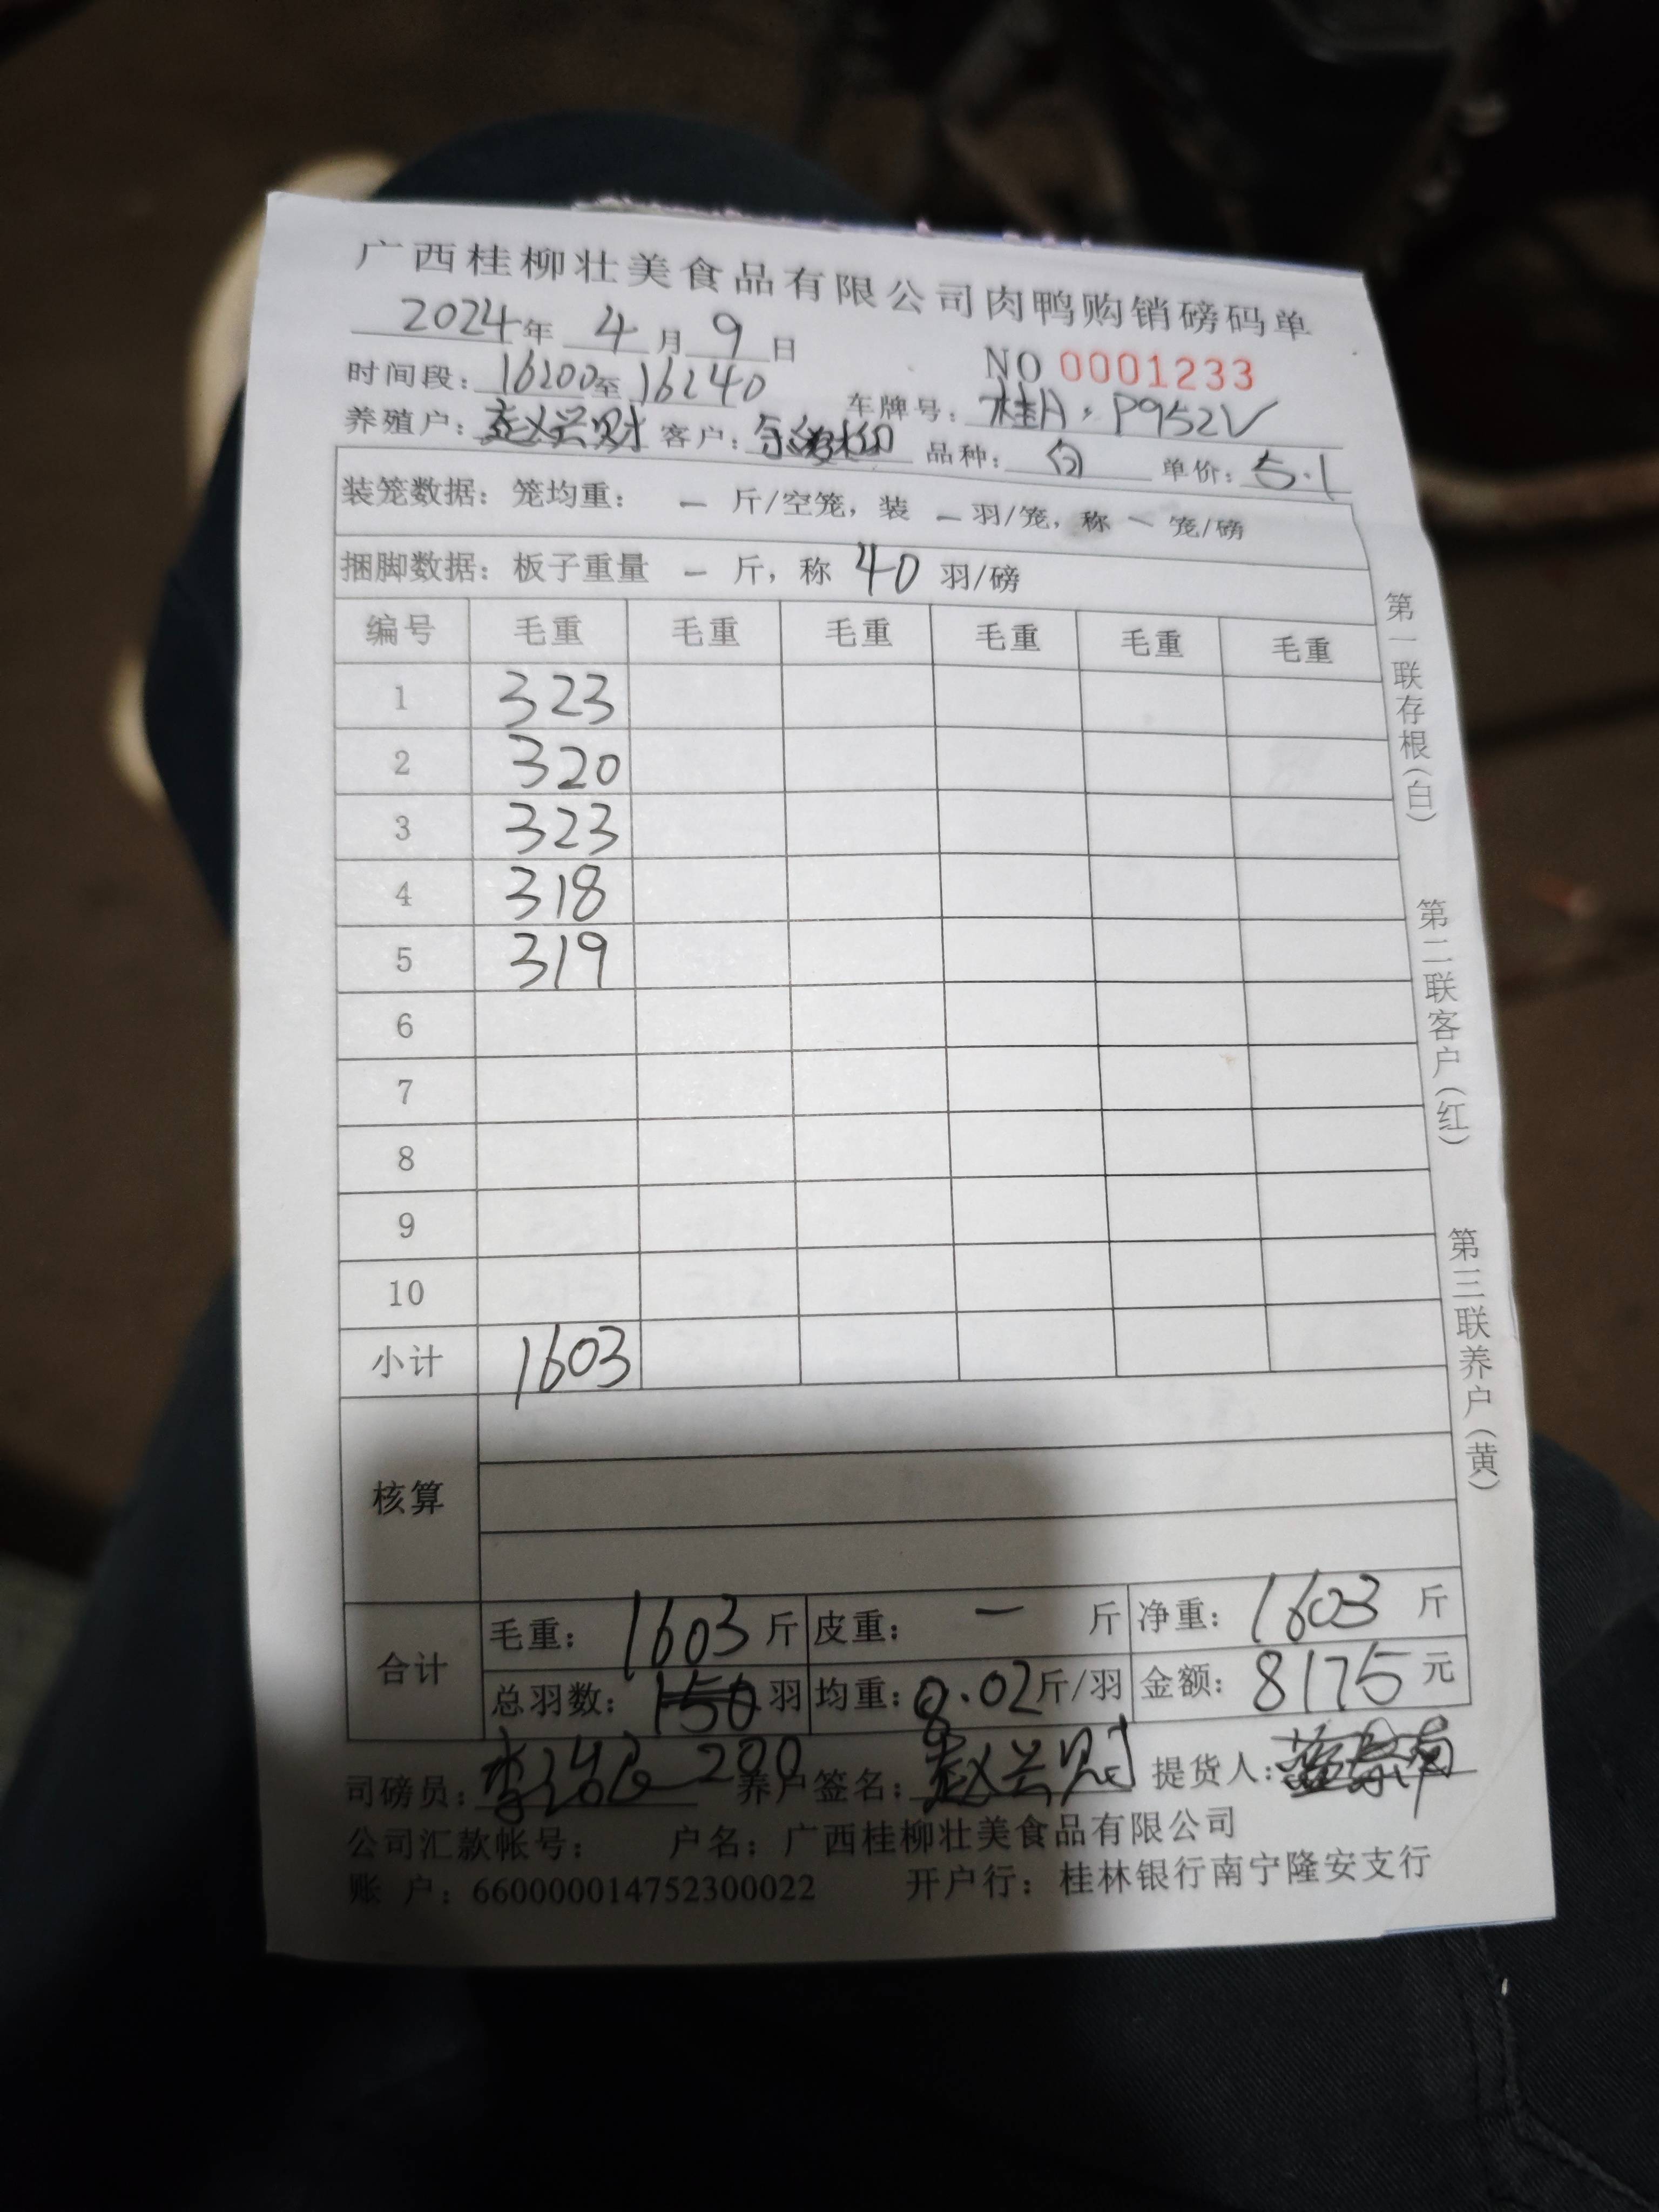 广西桂柳壮美食品有限公司肉鸭购销磅码单
2024年 4月9日
NO 0001233
时间段：16:00至16:40 车牌号：桂A·P952V
养殖户：赵兴财 客户： 品种：白 单价：5.1
装笼数据：笼均重：— 斤/空笼，装 — 羽/笼，称 — 笼/磅
捆脚数据：板子重量 — 斤，称 40 羽/磅
编号 毛重 毛重 毛重 毛重 毛重 毛重
1 323
2 320
3 323
4 318
5 319
6
7
8
9
10
小计 1603
核算
合计 毛重：1603斤 皮重：— 斤 净重：1603斤
总羽数：150羽 均重：8.02斤/羽 金额：8175元
司磅员： 200 养户签名：赵兴财 提货人：
公司汇款帐号： 户名：广西桂柳壮美食品有限公司
账 户：660000014752300022 开户行：桂林银行南宁隆安支行
第一联存根（白）
第二联客户（红）
第三联养户（黄）